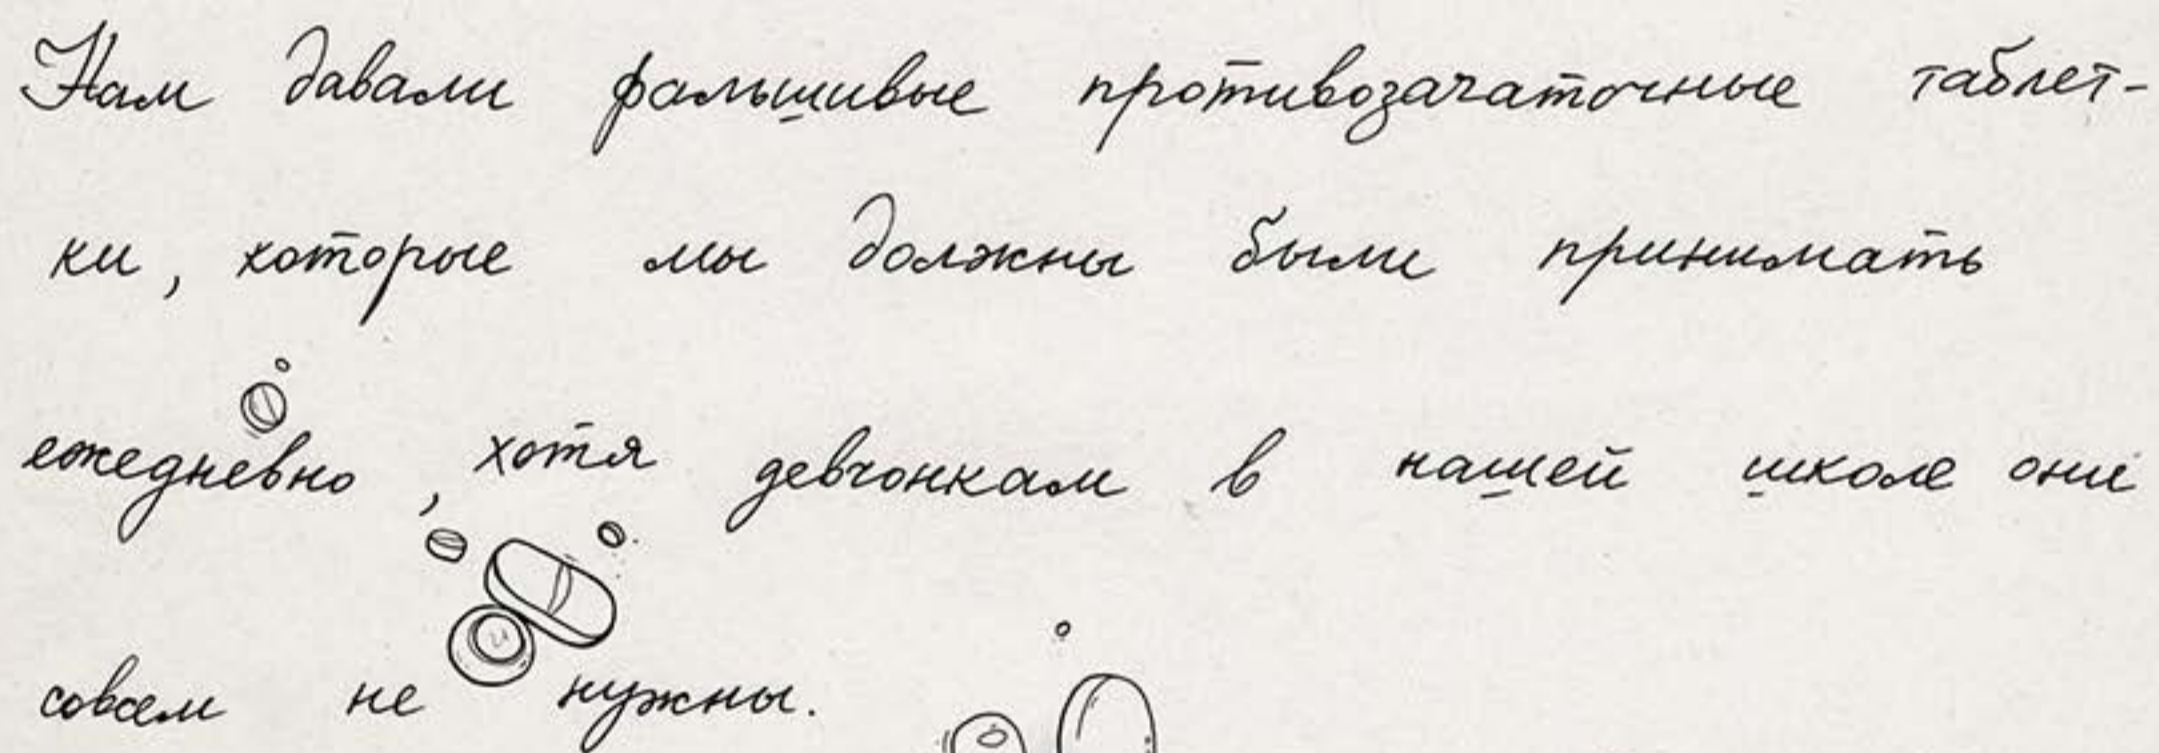 Нам давали фальшивые противозачаточные таблет-
ки, которые мы должны были принимать
ежедневно, хотя девчонкам в нашей школе они
совсем не нужны.